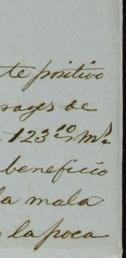 te positivo
rages de
123 10 Ms.
beneficio
la mala
la poca